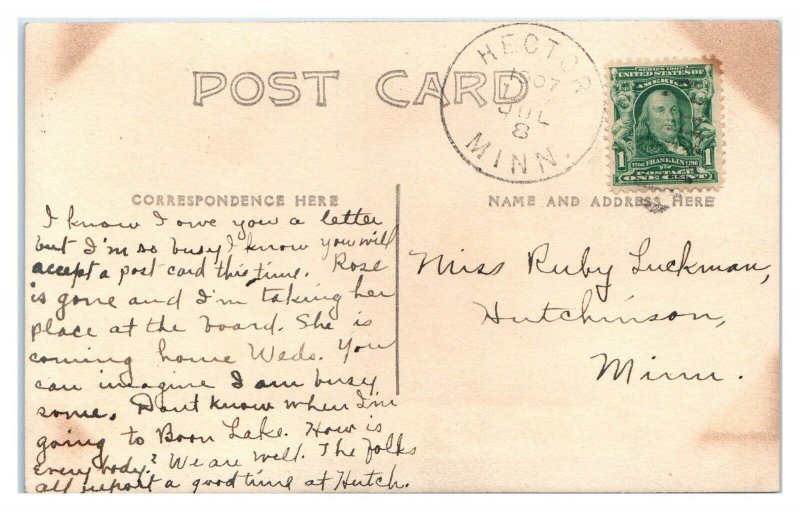 POST CARD
HECTOR
1907
JUL
8
MINN.
SERIES 1902
UNITED STATES OF
AMERICA
1706 FRANKLIN 1790
1 1
POSTAGE
ONE CENT
CORRESPONDENCE HERE
NAME AND ADDRESS HERE
I know I owe you a letter
but I'm so busy I know you will
accept a post card this time. Rose
is gone and I'm taking her
place at the board. She is
coming home Weds. You
can imagine I am busy
some. Dont know when I'm
going to Boon Lake. How is
everybody? We are well. The folks
all report a good time at Hutch.
Miss Ruby Luckman,
Hutchinson,
Minn.